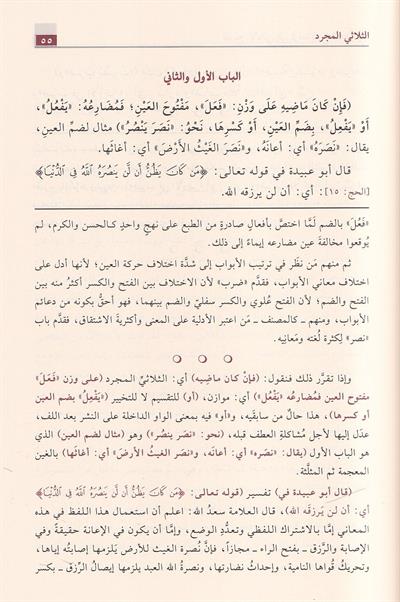 الثلاثي المجرد
٥٥
الباب الأول والثاني
(فَإِنْ كَانَ مَاضِيهِ عَلَى وَزْنِ: «فَعَلَ»، مَفْتُوحَ العَيْنِ؛ فَمُضَارِعُهُ: «يَفْعُلُ»،
أَوْ «يَفْعِلُ»، بِضَمِّ العَيْنِ، أَوْ كَسْرِهَا، نَحْوُ: «نَصَرَ يَنْصُرُ») مثال لضم العين،
يقال: «نَصَرَهُ» أي: أعانَهُ، و«نَصَرَ الغَيْثُ الأَرْضَ» أي: أغاثَها.
قال أبو عبيدة في قوله تعالى: ﴿مَن كَانَ يَظُنُّ أَن لَّن يَنصُرَهُ اللَّهُ فِي الدُّنْيَا﴾
[الحج: ١٥]: أي: أن لن يرزقه الله.
«فَعُلَ» بالضم لَمَّا اختصَّ بأفعال صادرةٍ من الطبع على نهجٍ واحدٍ كـالحسن والكرم، لم
يُوقعوا مخالفةَ عين مضارعه إيماءً إلى ذلك.
ثم منهم مَن نظَر في ترتيب الأبواب إلى شدَّة اختلاف حركة العين؛ لأنها أدل على
اختلاف معاني الأبواب، فقدَّم «ضرب» لأن الاختلاف بين الفتح والكسر أكثرُ منه بين
الفتح والضم؛ لأن الفتحَ عُلوي والكسر سفليٌّ والضم بينهما، فهو أحقُّ بكونه من دعائم
الأبواب، ومنهم ــ كـالمصنف ــ مَن اعتبر الأدلية على المعنى وأكثرية الاشتقاق، فقدَّم باب
«نصر» لكثرة لُغته ومَعانِيه.
وإذا تقرَّر ذلك فنقول: (فإن كان ماضيه) أي: الثلاثيِّ المجرد (على وزن «فَعَلَ»
مفتوح العين فمضارعُه «يَفْعُل») أي: موازن، (أو) للتقسيم لا للتخيير («يَفْعِلُ» بضم العين
أو كسرها)، هذا حالٌ من سابقَيه، و«أو» فيه بمعنى الواو الداخلة على النشر بعد اللف،
عدَل إليها لأجل مُشاكلةِ العطف قبله، (نحو: «نصَر ينصُر») وهو (مثال لضم العين) الذي
هو الباب الأول (يقال: «نصَره» أي: أعانَه، و«نصَر الغيثُ الأرضَ» أي: أغاثها) بالغين
المعجمة ثم المثلَّثة.
(قال أبو عبيدة في) تفسير (قوله تعالى: ﴿مَن كَانَ يَظُنُّ أَن لَّن يَنصُرَهُ اللَّهُ فِي الدُّنْيَا﴾
أي: أن لن يَرزُقَه الله)، قال العلامة سعدُ الله: اعلم أن استعمال هذا اللفظ في هذه
المعاني إما بالاشتراك اللفظي وتعدُّد الوضع، وإمَّا أن يكون في الإعانة حقيقةً وفي
الإصابة والرَّزق ــ بفتح الراء ــ مجازاً، فإنَّ نُصرة الغيث للأرض يَلزمها إصابتُه إياها،
وتحريكُ قُواها النامية، وإحداثُ نضارتها، ونصرةُ الله العبد يلزمها إيصال الرِّزق ــ بكسر